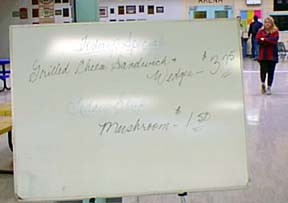 ARENA
Today's Special
Grilled Cheese Sandwich +
Wedges - $3.75
Soup
Mushroom - $1.50